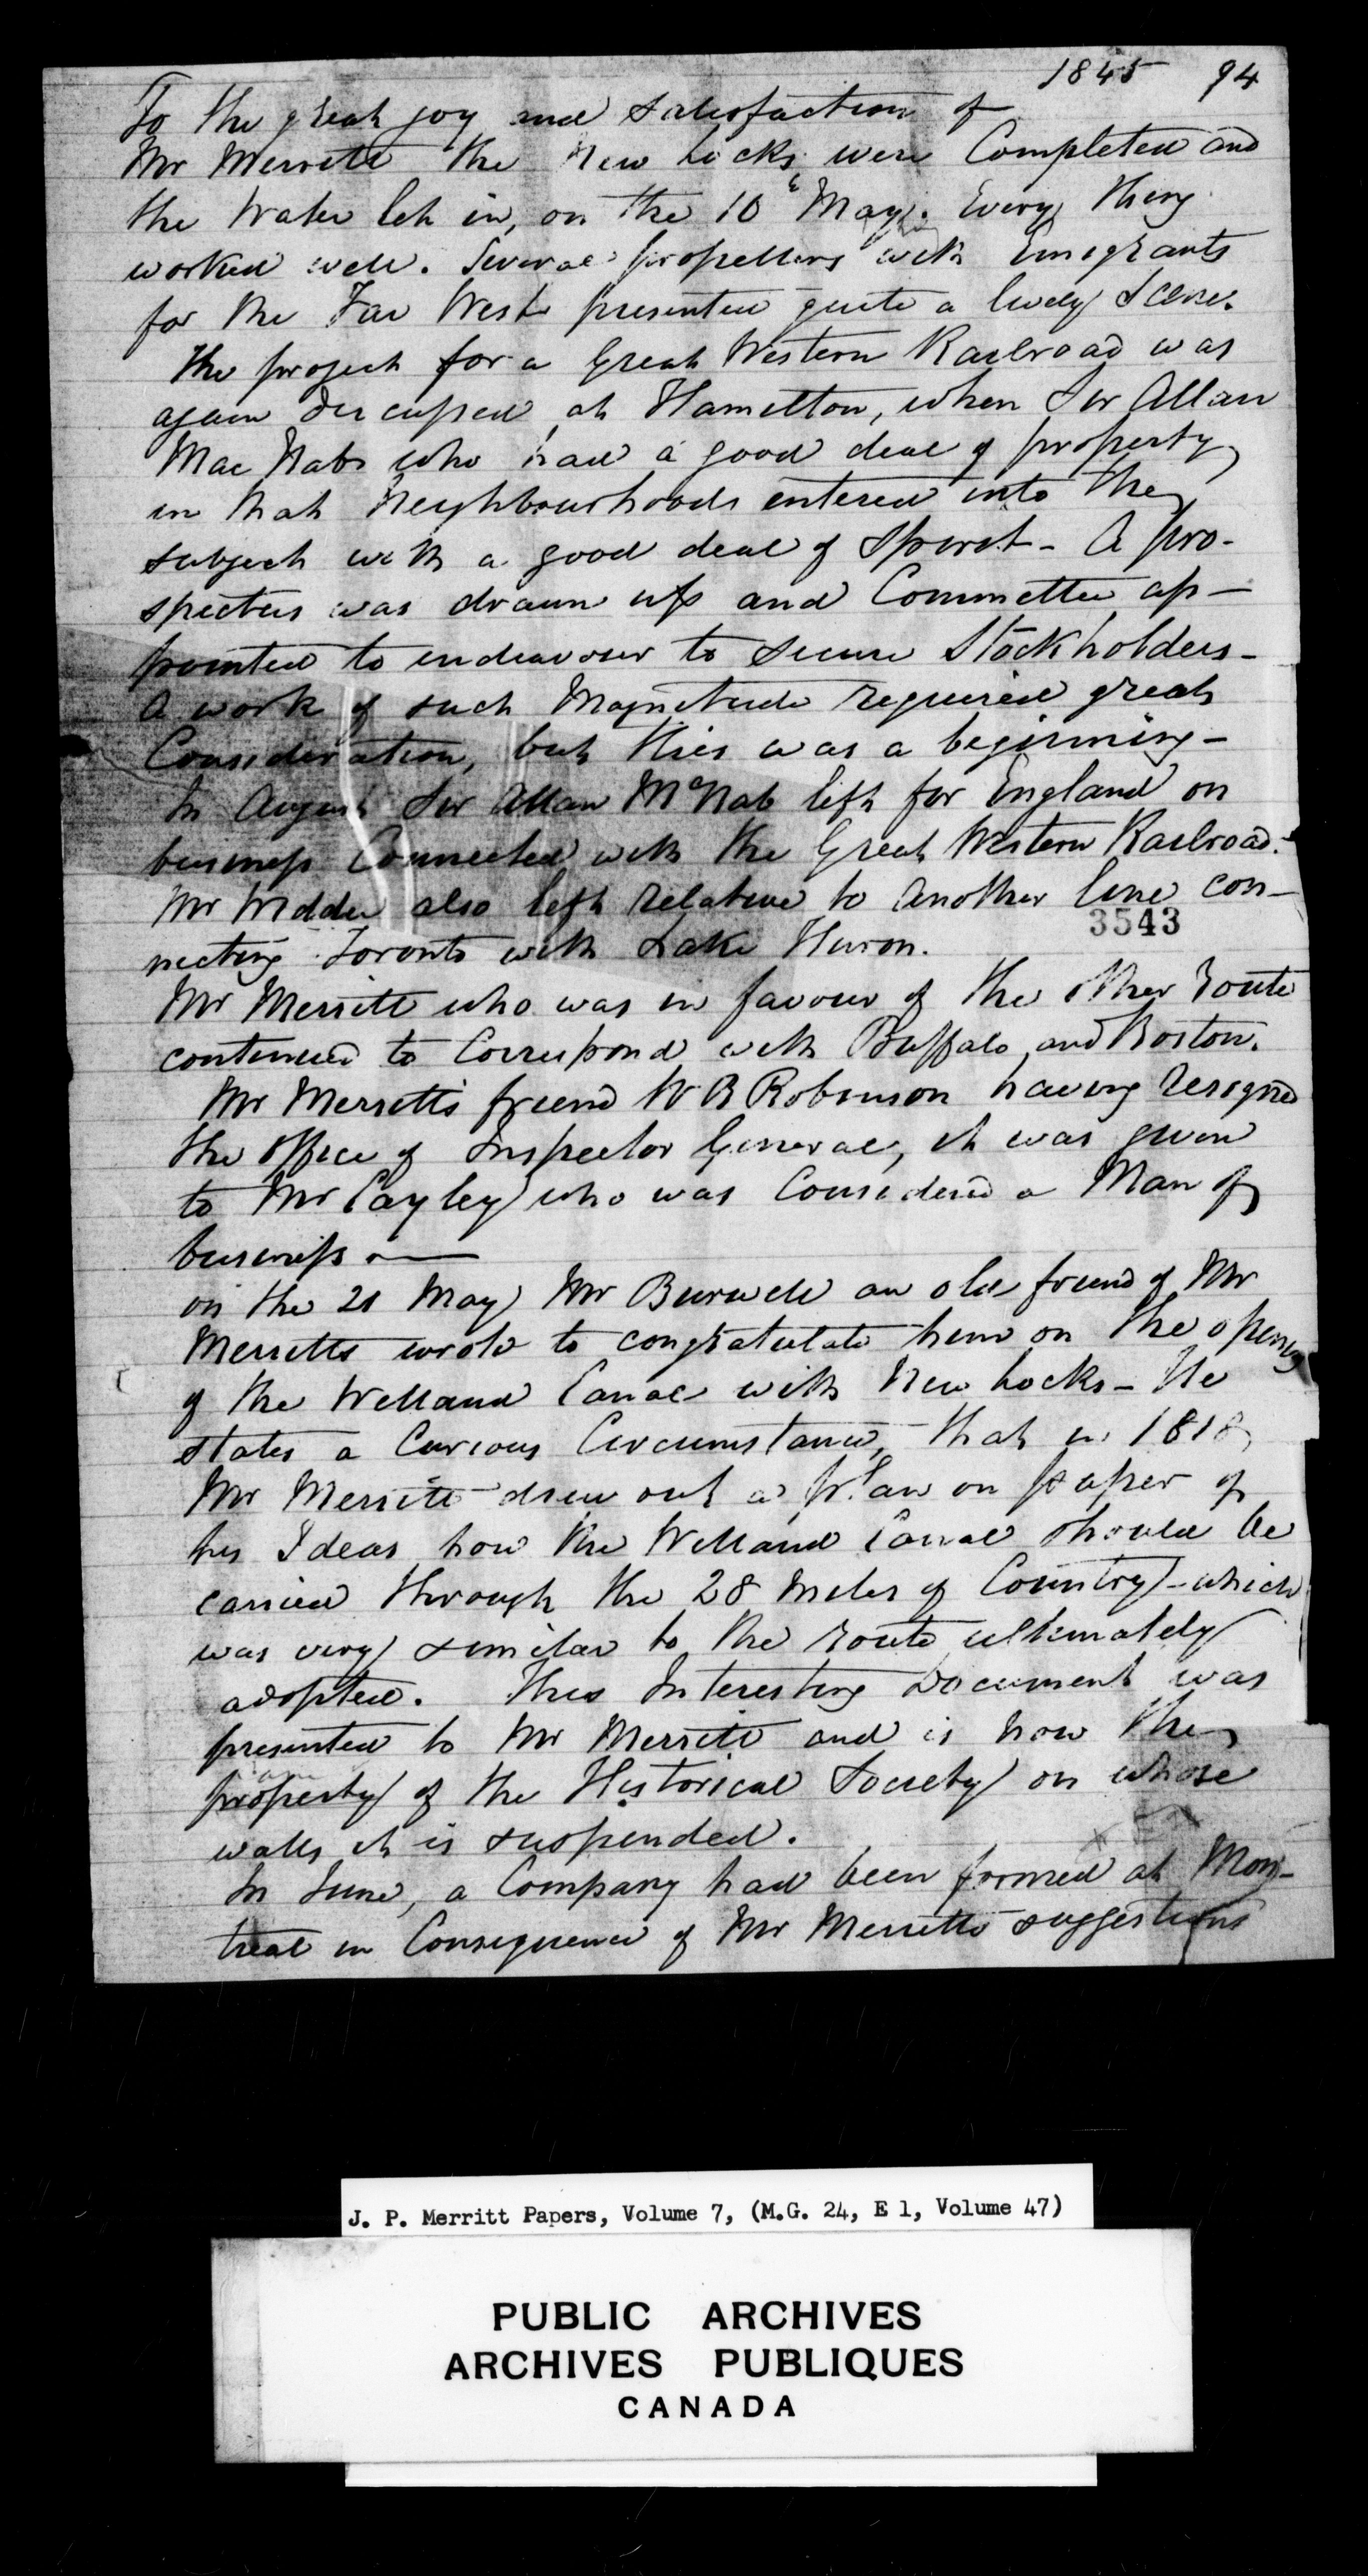 1845 94
To the great joy and satisfaction of
Mr Merritt the New Locks were Completed and
the Water let in, on the 10 May. Every thing
worked well. Several propellers with Emigrants
for the Far West presented quite a lively Scene.
The project for a Great Western Railroad was
again discussed at Hamilton, when Sir Allan
Mac Nab who had a good deal of property
in that Neighbourhood entered into the
subject with a good deal of Spirit - A pro-
spectus was drawn up and Committee ap-
pointed to endeavour to secure Stockholders -
A work of such Magnitude required great
Consideration, but this was a beginning -
In August Sir Allan McNab left for England on
business Connected with the Great Western Railroad.
Mr Widder also left relative to another line con-
3543
necting Toronto with Lake Huron.
Mr Merritt who was in favour of the other Route
continued to Correspond with Buffalo and Boston.
Mr Merritts friend W B Robinson having resigned
the office of Inspector General, it was given
to Mr Cayley who was Considered a Man of
business
on the 21 May Mr Burwell an old friend of Mr
Merritts wrote to congratulate him on the opening
of the Welland Canal with New Locks - He
states a Curious Circumstance, that in 1818
Mr Merritt drew out a plan on paper of
his Ideas how the Welland Canal should be
carried through the 28 miles of Country - which
was very similar to the route ultimately
adopted. This Interesting Document was
presented to Mr Merritt and is now the
property of the Historical Society on whose
walls it is suspended.
In June, a Company had been formed at Mon-
treal in Consequence of Mr Merritts suggestions
J. P. Merritt Papers, Volume 7, (M.G. 24, E 1, Volume 47)
PUBLIC ARCHIVES
ARCHIVES PUBLIQUES
CANADA